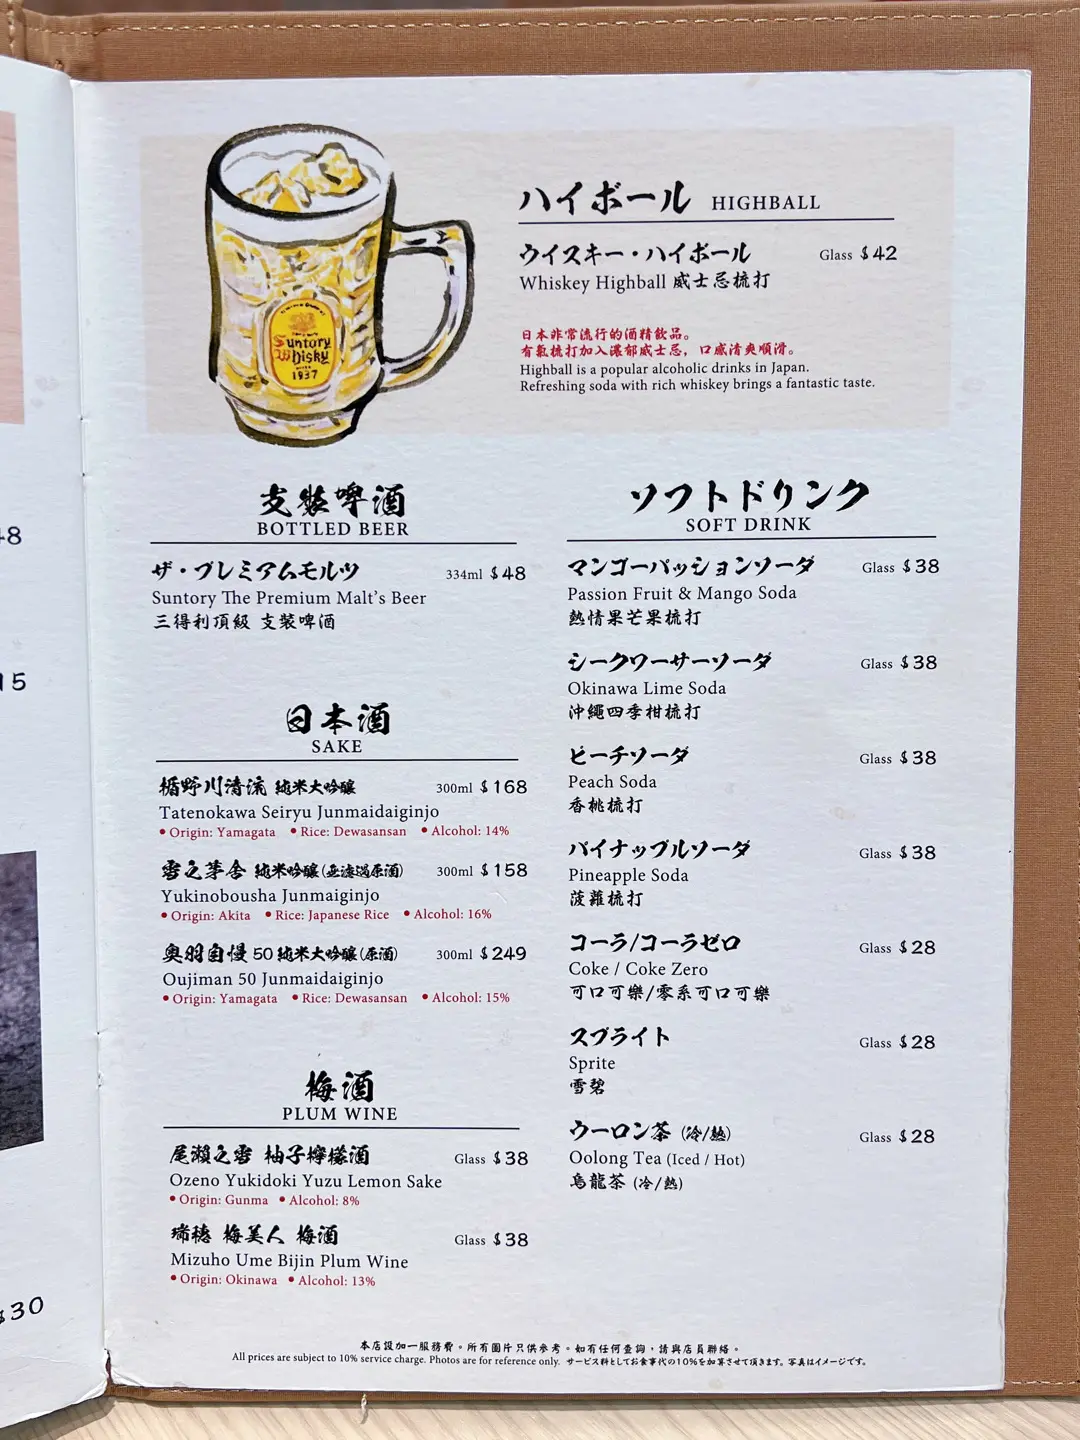 ハイボール HIGHBALL
ウイスキー・ハイボール Glass $42
Whiskey Highball 威士忌梳打
日本非常流行的酒精飲品。
有氣梳打加入濃郁威士忌，口感清爽順滑。
Highball is a popular alcoholic drinks in Japan.
Refreshing soda with rich whiskey brings a fantastic taste.
Suntory
Whisky
1937
支裝啤酒
BOTTLED BEER
ザ・プレミアムモルツ 334ml $48
Suntory The Premium Malt's Beer
三得利頂級 支裝啤酒
日本酒
SAKE
楯野川清流 純米大吟醸 300ml $168
Tatenokawa Seiryu Junmaidaiginjo
• Origin: Yamagata • Rice: Dewasansan • Alcohol: 14%
雪之茅舎 純米吟醸(無濾過原酒) 300ml $158
Yukinobousha Junmaiginjo
• Origin: Akita • Rice: Japanese Rice • Alcohol: 16%
奥羽自慢50純米大吟醸(原酒) 300ml $249
Oujiman 50 Junmaidaiginjo
• Origin: Yamagata • Rice: Dewasansan • Alcohol: 15%
梅酒
PLUM WINE
尾瀬之雪 柚子檸檬酒 Glass $38
Ozeno Yukidoki Yuzu Lemon Sake
• Origin: Gunma • Alcohol: 8%
瑞穂 梅美人 梅酒 Glass $38
Mizuho Ume Bijin Plum Wine
• Origin: Okinawa • Alcohol: 13%
ソフトドリンク
SOFT DRINK
マンゴーパッションソーダ Glass $38
Passion Fruit & Mango Soda
熱情果芒果梳打
シークワーサーソーダ Glass $38
Okinawa Lime Soda
沖繩四季柑梳打
ピーチソーダ Glass $38
Peach Soda
香桃梳打
パイナップルソーダ Glass $38
Pineapple Soda
菠蘿梳打
コーラ/コーラゼロ Glass $28
Coke / Coke Zero
可口可樂/零系可口可樂
スプライト Glass $28
Sprite
雪碧
ウーロン茶 (冷/熱) Glass $28
Oolong Tea (Iced / Hot)
烏龍茶 (冷/熱)
本店設加一服務費。所有圖片只供參考。如有任何查詢，請與店員聯絡。
All prices are subject to 10% service charge. Photos are for reference only. サービス料としてお食事代の10%を加算させて頂きます。写真はイメージです。
48
15
$30